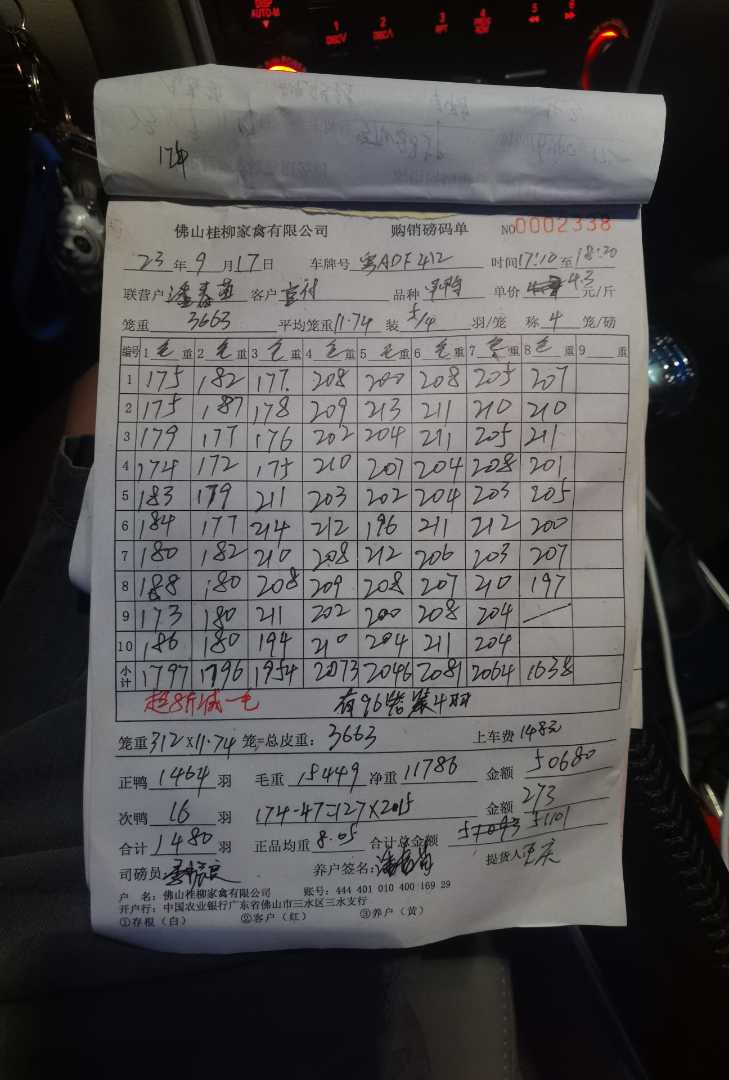 DISP
AUTO-M
1 DISC∨
2 DISC∧
3 RPT
4 RDM
5 ◀◀
6 ▶▶
17年
佛山桂柳家禽有限公司 购销磅码单 NO 0002338
23 年 9 月 17 日 车牌号 粤ADF412 时间 17:10 至 18:20
联营户 客户 品种 单价 4.3 元/斤
笼重 3663 平均笼重 11.74 装 5/4 羽/笼 称 4 笼/磅
编号 1 毛 重 2 毛 重 3 毛 重 4 毛 重 5 毛 重 6 毛 重 7 毛 重 8 毛 重 9 重
1 175 182 177 208 200 208 205 207
2 175 187 178 209 213 211 210 210
3 179 177 176 202 204 211 205 211
4 174 172 175 210 207 204 208 201
5 183 179 211 203 202 204 203 205
6 184 177 214 212 196 211 212 200
7 180 182 210 208 212 206 203 207
8 188 180 208 209 208 207 210 197
9 173 180 211 202 200 208 204 —
10 186 180 194 210 204 211 204
小计 1797 1796 1954 2073 2046 2081 2064 1638
超8斤减一毛 有96笼装4羽
笼重 312×11.74 笼=总皮重: 3663 上车费 148元
正鸭 1464 羽 毛重 15449 净重 11786 金额 50680
次鸭 16 羽 174-47=127×2.15 金额 273
合计 1480 羽 正品均重 8.05 合计总金额 51101
司磅员 养户签名: 提货人
户 名: 佛山桂柳家禽有限公司 账号: 444 401 010 400 169 29
开户行: 中国农业银行广东省佛山市三水区三水支行
①存根(白) ②客户(红) ③养户(黄)